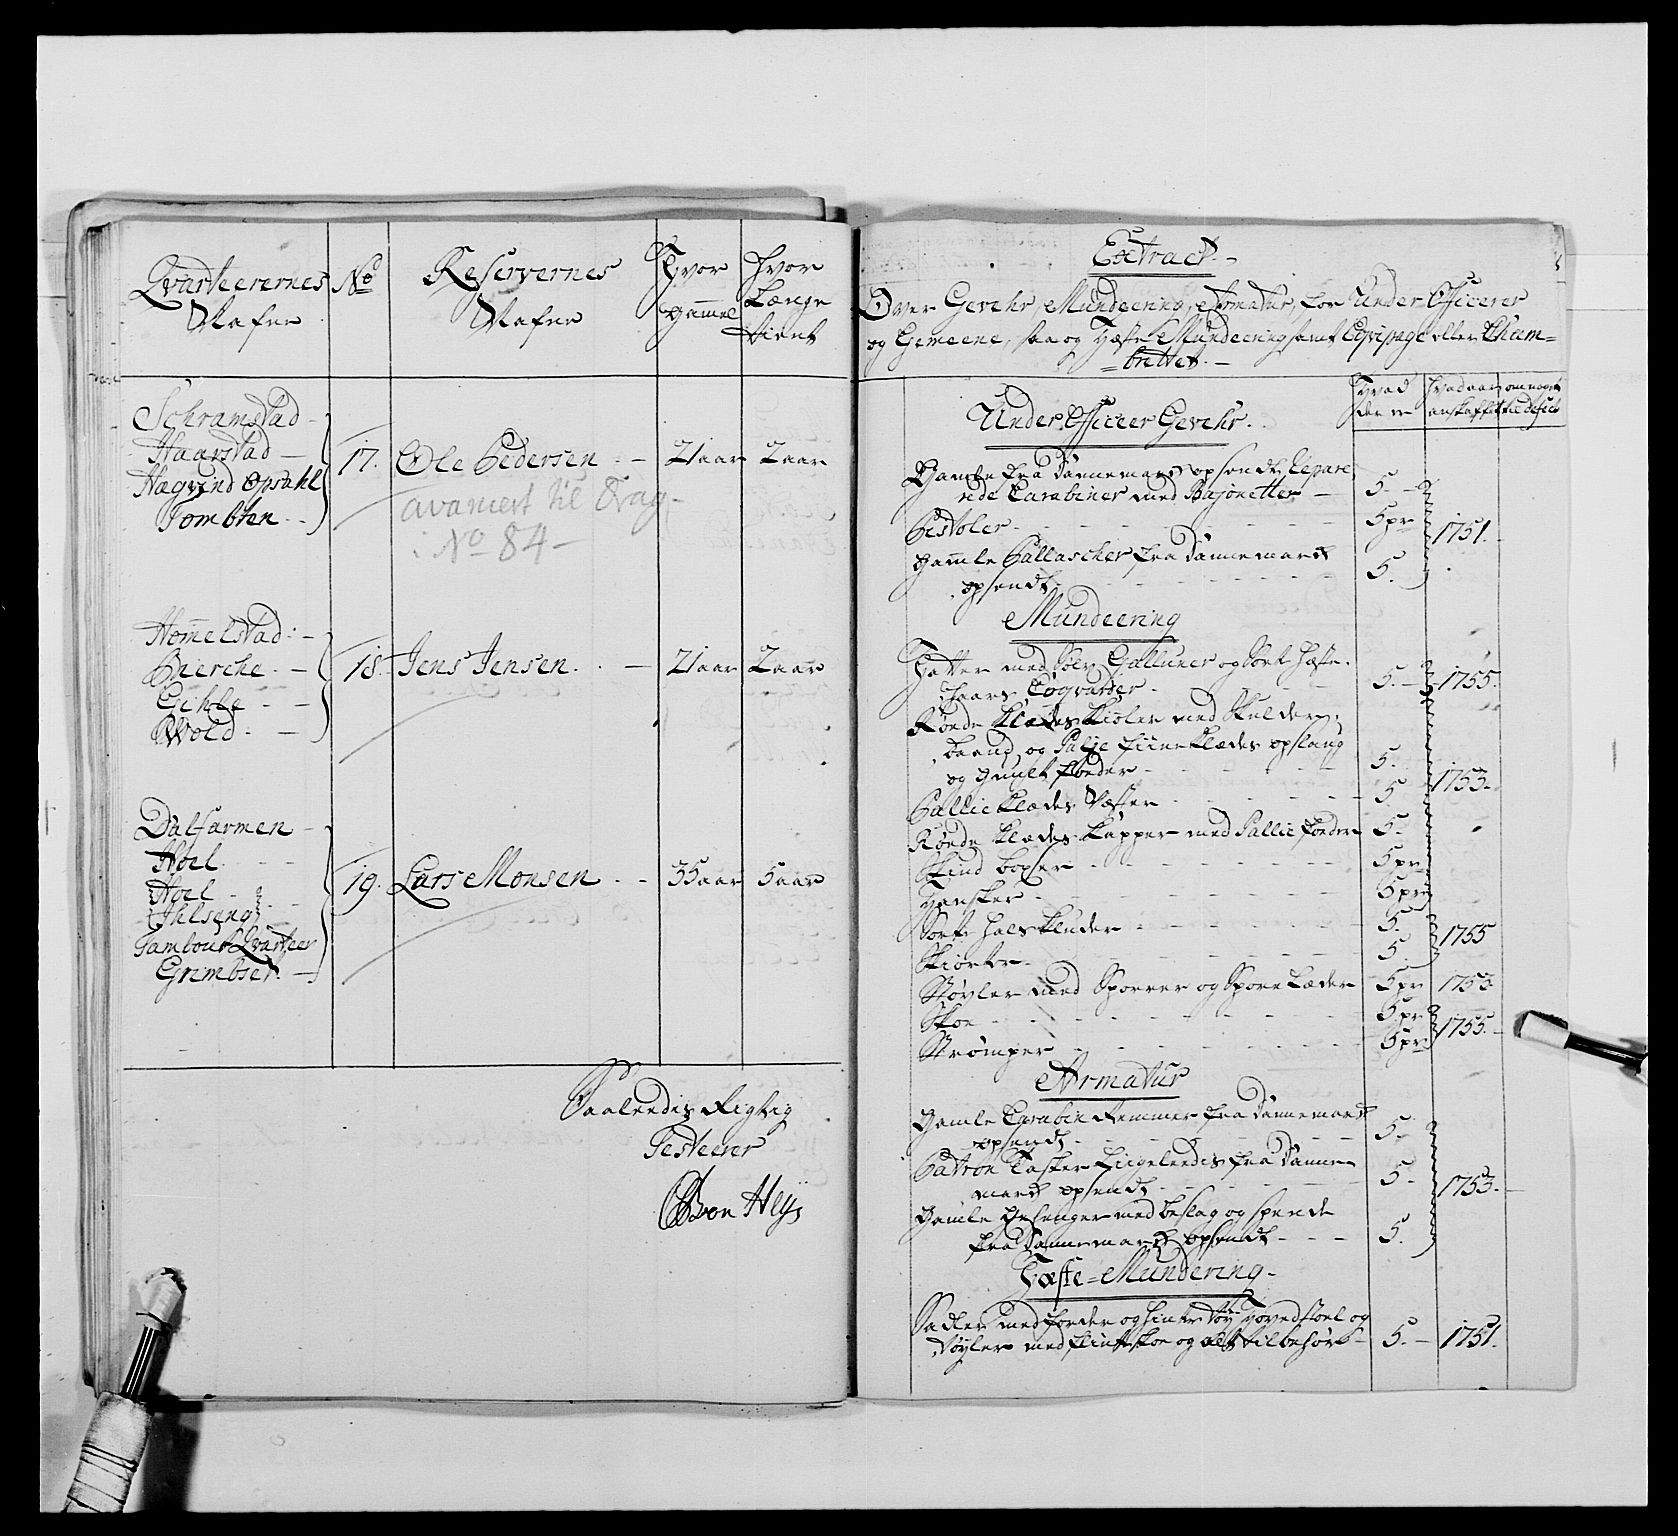 Qvarteerernes
Nafne
No
Reservernes
Nafne
Hvor
gammel
Hvor
Længe
tient
Schramstad -
Haarstad -
Hægvind Opsahl
Tombten
17.
Ole Pedersen - -
21 aar
2 aar
avancert til Drag
i No 84 -
Hommelstad: -
Bierche - -
Gihle - -
Wold. -
18.
Jens Jensen. -
21 aar
2 aar
Dalfarmen -
Hoel - -
Hoel - -
Ihlseng
Tambour Qvarteer
Grimbset. -
19.
Lars Monsen - -
35 aar
5 aar
Saaleedis Rigtig
Testeerer
von Heÿ
Extract. -
Over Gevehr, Mundeering, Armatur, for Under Officerer
og Gemeene, saa og Hæste Mundeering samt Eqvipage eller Cham=
=brettet. -
Hvad
der er
hvad aar
anskaffet
om noget
er deficit
Under Officer Gevehr.
Gamle fra Dannemarck opsendte repare
rede Carabiner med Bajonetter -
5. -
Pistoler - - - -
5 pr
1751.
Gamle Pallascher fra Dannemarck
opsendt - - - -
5.
Mundeering
Hatter med Sølv Galluner og sort Hæste
haars Coqvarder -
5. -
1755.
Røede Klædes Kioler med Skulder
baand, og Palje fiine Klædes opslaug
og Guult foeder - - -
5.
1753.
Pallie Klædes Væster - - -
5
Røede Klædes Kapper med Pallie foeder
5.
Skind boxer - - - -
5 pr
Hansker - - - -
5 pr
Sorte Halsklude - - - -
5.
1755
Skiorter - - - -
5.
Støvler med Sporrer og Spore Læder
5 pr
1753
Skoe - - - -
5 pr
1755. -
Strømper - - - -
5 pr
Armatur
Gamle Carabin Remmer fra Dannemarck
opsendt - - - -
5. -
Patron Tasker Liigeleedis fra Danne
marck opsendt - - - -
5 -
1753. -
Gamle Gehenger med beslag og spende
fra Dannemarck opsendt - - -
5.
Hæste = Mundering -
Sadler med for og hinter tøy Hovedstoel og
tøyler med flintskoe og alt tilbehør -
5. -
1751.